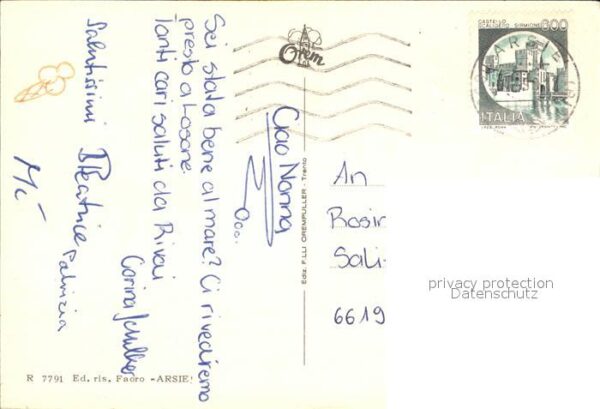 Ciao Nonna
Sei stata bene al mare? Ci rivedremo
presto a Losone
Tanti cari saluti da Rivai
Corina
Salutissimi Beatrice Patrizia
An
Rosir
Sali
6619
CASTELLO
SCALIGERO SIRMIONE
300
ITALIA
ARSIE
Orem
Ediz. F.LLI OREMPULLER - Trento
R 7791 Ed. ris. Faoro -ARSIE'
privacy protection
Datenschutz